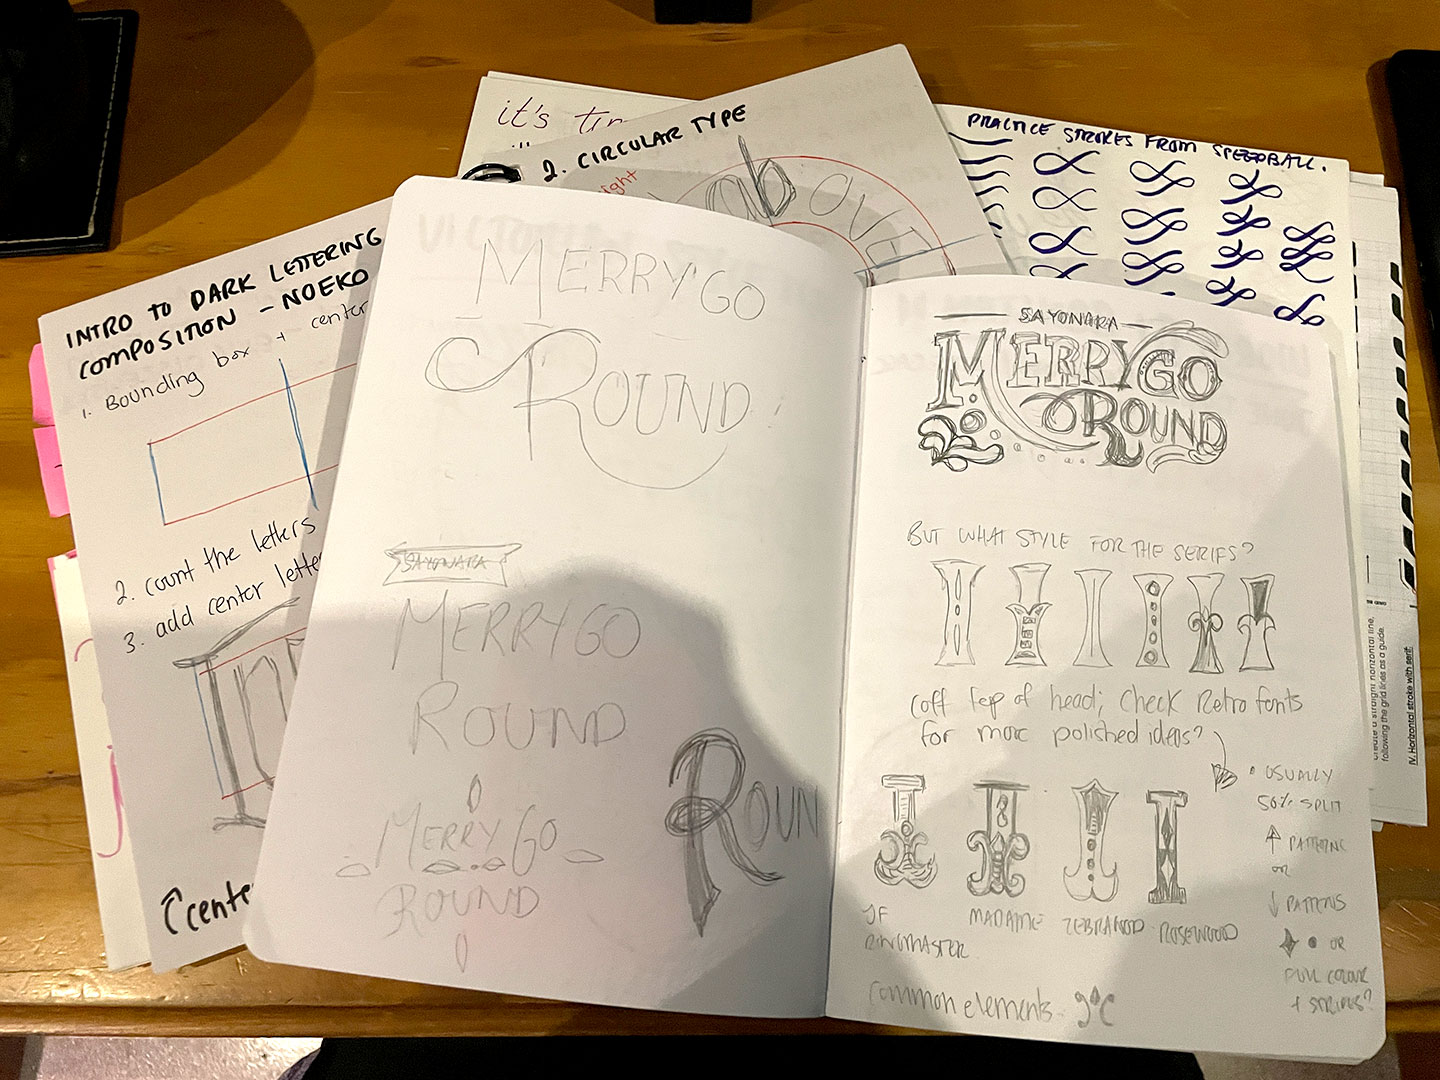 it's
2. CIRCULAR TYPE
above
PRACTICE STROKES FROM SPEEDBALL.
INTRO TO DARK LETTERING
COMPOSITION - NOEKO
1. Bounding box + center
2. count the letters
3. add center
MERRY GO
ROUND
SAYONARA
MERRY GO
ROUND
MERRY GO
ROUND
ROUN
SAYONARA
MERRY GO
ROUND
BUT WHAT STYLE FOR THE SERIFS?
(off top of head; check Retro fonts
for more polished ideas?
• USUALLY
50% SPLIT
↑ PATTERNS
OR
↓ PATTERNS
OR
FULL COLOUR
+ STRIPES?
JF
RINGMASTER
MADAME
ZEBRAWOOD
ROSEWOOD
common elements
Create a straight horizontal line,
following the grid lines as a guide.
IV. Horizontal stroke with serif: